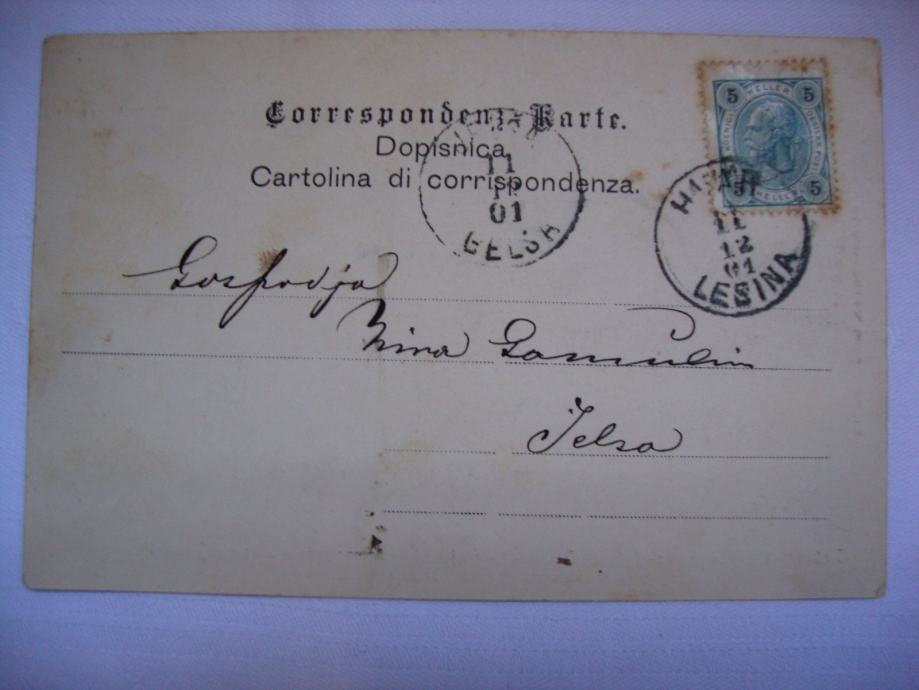 Correspondenz-Karte.
Dopisnica
Cartolina di corrispondenza.
5 HELLER 5
5 HELLER 5
11
01
GELSA
11
12
01
LESINA
Gospodja
Nina Gamulin
Jelsa